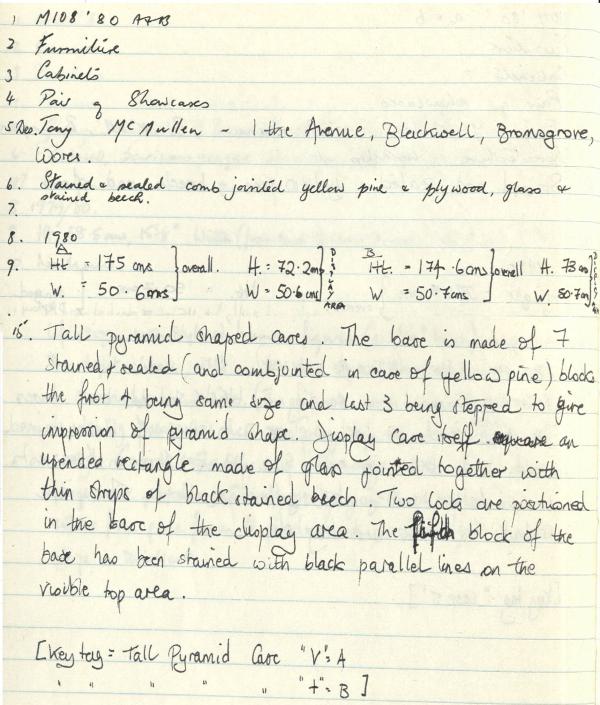 1 M108'80 A+B
2 Furniture
3 Cabinets
4 Pair of Showcases
5 Des. Tony McMullen - 1 the Avenue, Blackwell, Bromsgrove,
Worcs.
6. Stained & sealed comb jointed yellow pine & plywood, glass &
stained beech.
7.
8. 1980
A B
9. Ht = 175 cms } overall. H. = 72.2cms ] DISPLAY AREA Ht. = 174.6cms ] overall H. 73 cms ] DISPLAY
W. = 50.6cms W = 50.6cms W = 50.7cms W. 50.7cms
15. Tall pyramid shaped cases. The base is made of 7
stained & sealed (and combjointed in case of yellow pine) blocks
the first 4 being same size and last 3 being stepped to give
impression of pyramid shape. Display case itself an
upended rectangle made of glass jointed together with
thin strips of black stained beech. Two locks are positioned
in the base of the display area. The fifth block of the
base has been stained with black parallel lines on the
visible top area.
[Key tag = Tall Pyramid Case "V" = A
" " " " " "+" = B ]